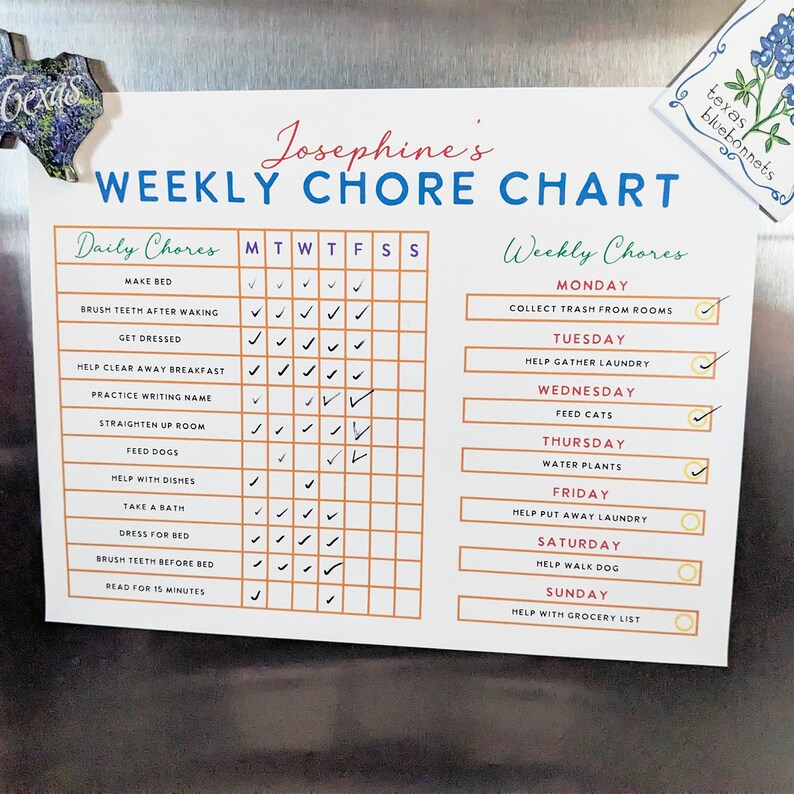 Texas
texas
bluebonnets
Josephine's
WEEKLY CHORE CHART
Daily Chores M T W T F S S
MAKE BED ✓ ✓ ✓ ✓ ✓
BRUSH TEETH AFTER WAKING ✓ ✓ ✓ ✓ ✓
GET DRESSED ✓ ✓ ✓ ✓ ✓
HELP CLEAR AWAY BREAKFAST ✓ ✓ ✓ ✓ ✓
PRACTICE WRITING NAME ✓ ✓ ✓ ✓
STRAIGHTEN UP ROOM ✓ ✓ ✓ ✓ ✓
FEED DOGS ✓ ✓ ✓
HELP WITH DISHES ✓ ✓
TAKE A BATH ✓ ✓ ✓ ✓
DRESS FOR BED ✓ ✓ ✓ ✓
BRUSH TEETH BEFORE BED ✓ ✓ ✓ ✓
READ FOR 15 MINUTES ✓ ✓
Weekly Chores
MONDAY
COLLECT TRASH FROM ROOMS ✓
TUESDAY
HELP GATHER LAUNDRY ✓
WEDNESDAY
FEED CATS ✓
THURSDAY
WATER PLANTS ✓
FRIDAY
HELP PUT AWAY LAUNDRY
SATURDAY
HELP WALK DOG
SUNDAY
HELP WITH GROCERY LIST